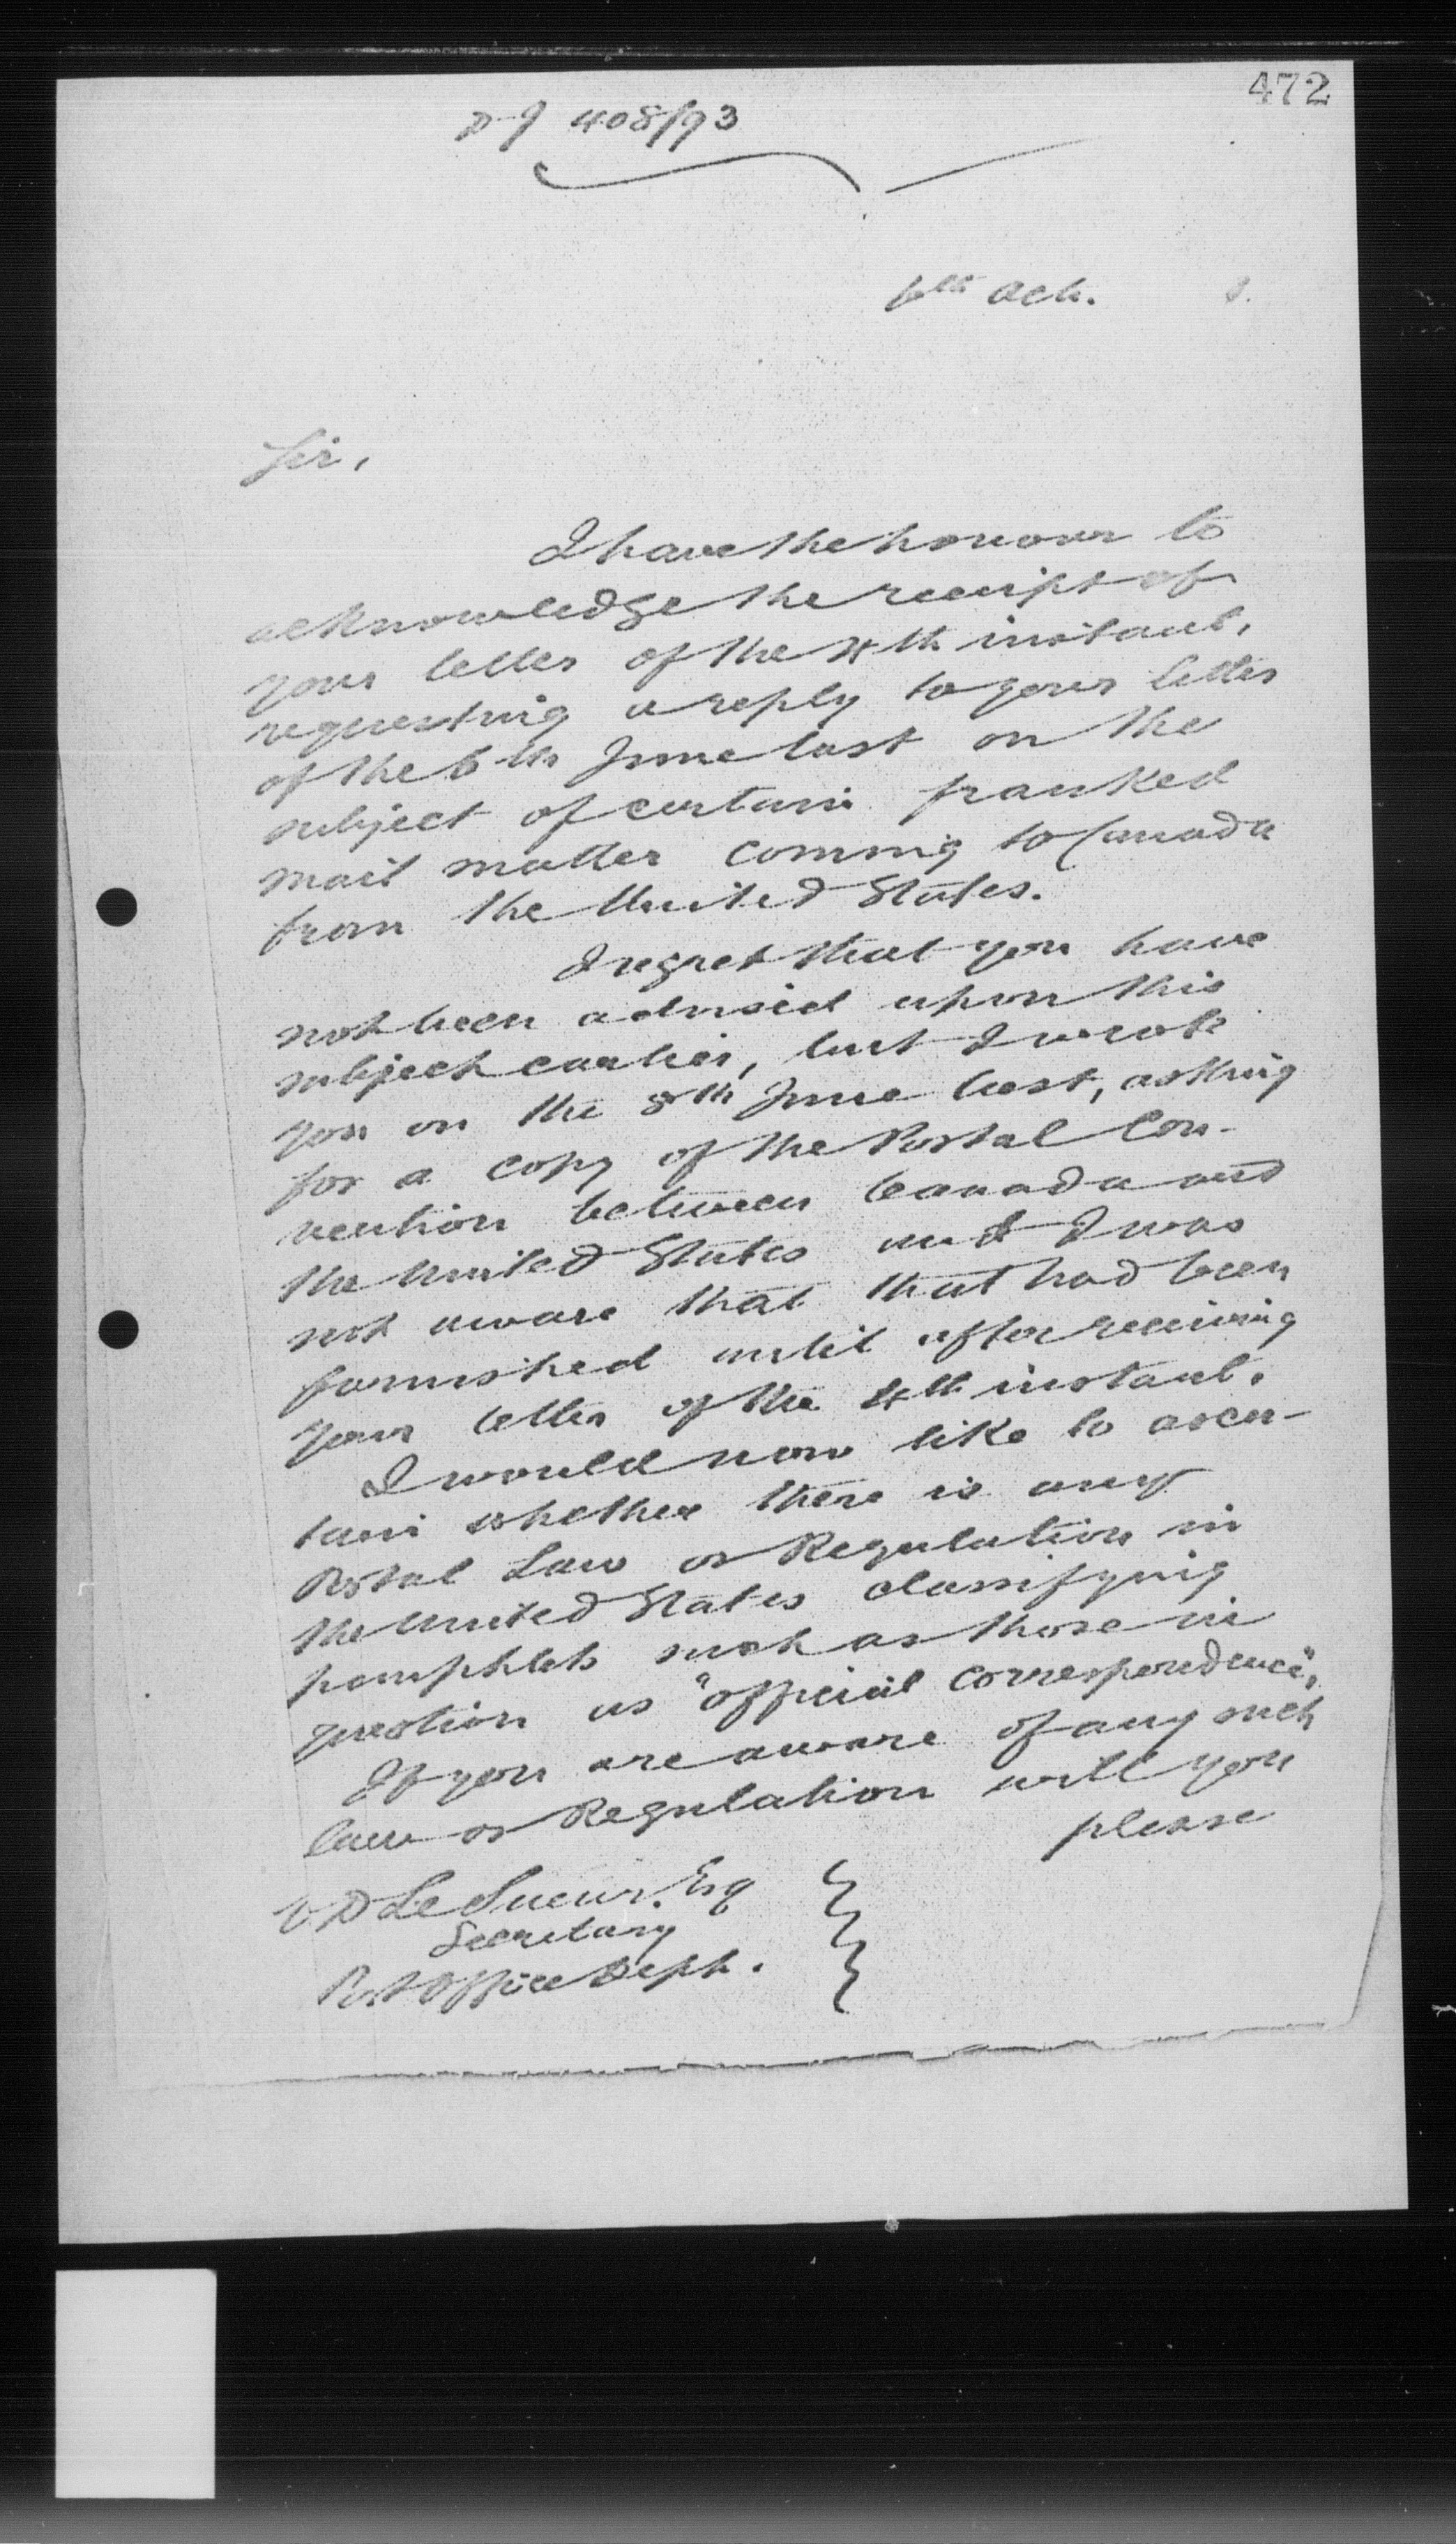 472
D J 408/93
6th Oct. 3.
Sir,
I have the honour to
acknowledge the receipt of
your letter of the 4th instant,
requesting a reply to your letter
of the 6th June last on the
subject of certain franked
mail matter coming to Canada
from the United States.
I regret that you have
not been advised upon this
subject earlier, but I wrote
you on the 8th June last, asking
for a copy of the Postal Con-
vention between Canada and
the United States and I was
not aware that that had been
furnished until after receiving
your letter of the 4th instant.
I would now like to ascer-
tain whether there is any
Postal Law or Regulation in
the United States classifying
pamphlets such as those in
question as "official correspondence",
If you are aware of any such
law or Regulation will you
please
W D Le Sueur. Esq
Secretary
Post Office Dept.